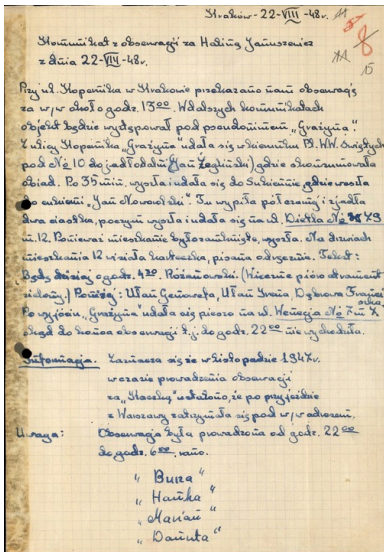 Kraków - 22-VIII-48r.
8
15
Komunikat z obserwacji za Haliną Januszewicz
z dnia 22-VIII-48r.
Przy ul. Kopernika w Krakowie przekazano nam obserwację
za w/w około godz. 13⁰⁰. W dalszych komunikatach
objekt będzie występował pod pseudonimem „Grażyna".
Z ulicy Kopernika „Grażyna" udała się w kierunku Pl. WW. Świętych
pod № 10 do jadłodalni (Jan ) gdzie konsumowała
obiad. Po 35 min. wyszła i udała się do Sukiennic, gdzie weszła
do cukierni „Jan Noworolski". Tu wypiła pół czarnej i zjadła
dwa ciastka, poczym wyszła i udała się na ul. Dietla № 79
m. 12. Ponieważ mieszkanie było zamknięte, wyszła. Na drzwiach
mieszkania 12 wisiała karteczka, pisana odręcznie. Tekst:
Będę dzisiaj o godz. 4³⁰. Różanowski. (Wieczne pióro atrament
zielony.) Poniżej: Ułan Genowefa, Ułan Irena, Dąbrowa Franci-
szka.
Po wyjściu, „Grażyna" udała się pieszo na ul. Wenecja № 7 m. 7
skąd do końca obserwacji t.j. do godz. 22⁰⁰ nie wychodziła.
Informacja. Zaznacza się że w listopadzie 1947r.
w czasie prowadzenia obserwacji
za ustalono, że po przyjeździe
z Warszawy zatrzymała się pod w/w adresem.
Uwaga: Obserwacja była prowadzona od godz. 22⁰⁰
do godz. 6⁰⁰, rano.
„Burza"
„Hanka"
„Marian"
„Danuta"